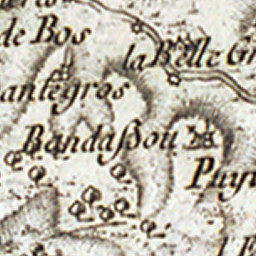 de Bos
la Belle Gr
antegros
Bandaſſou
Puy